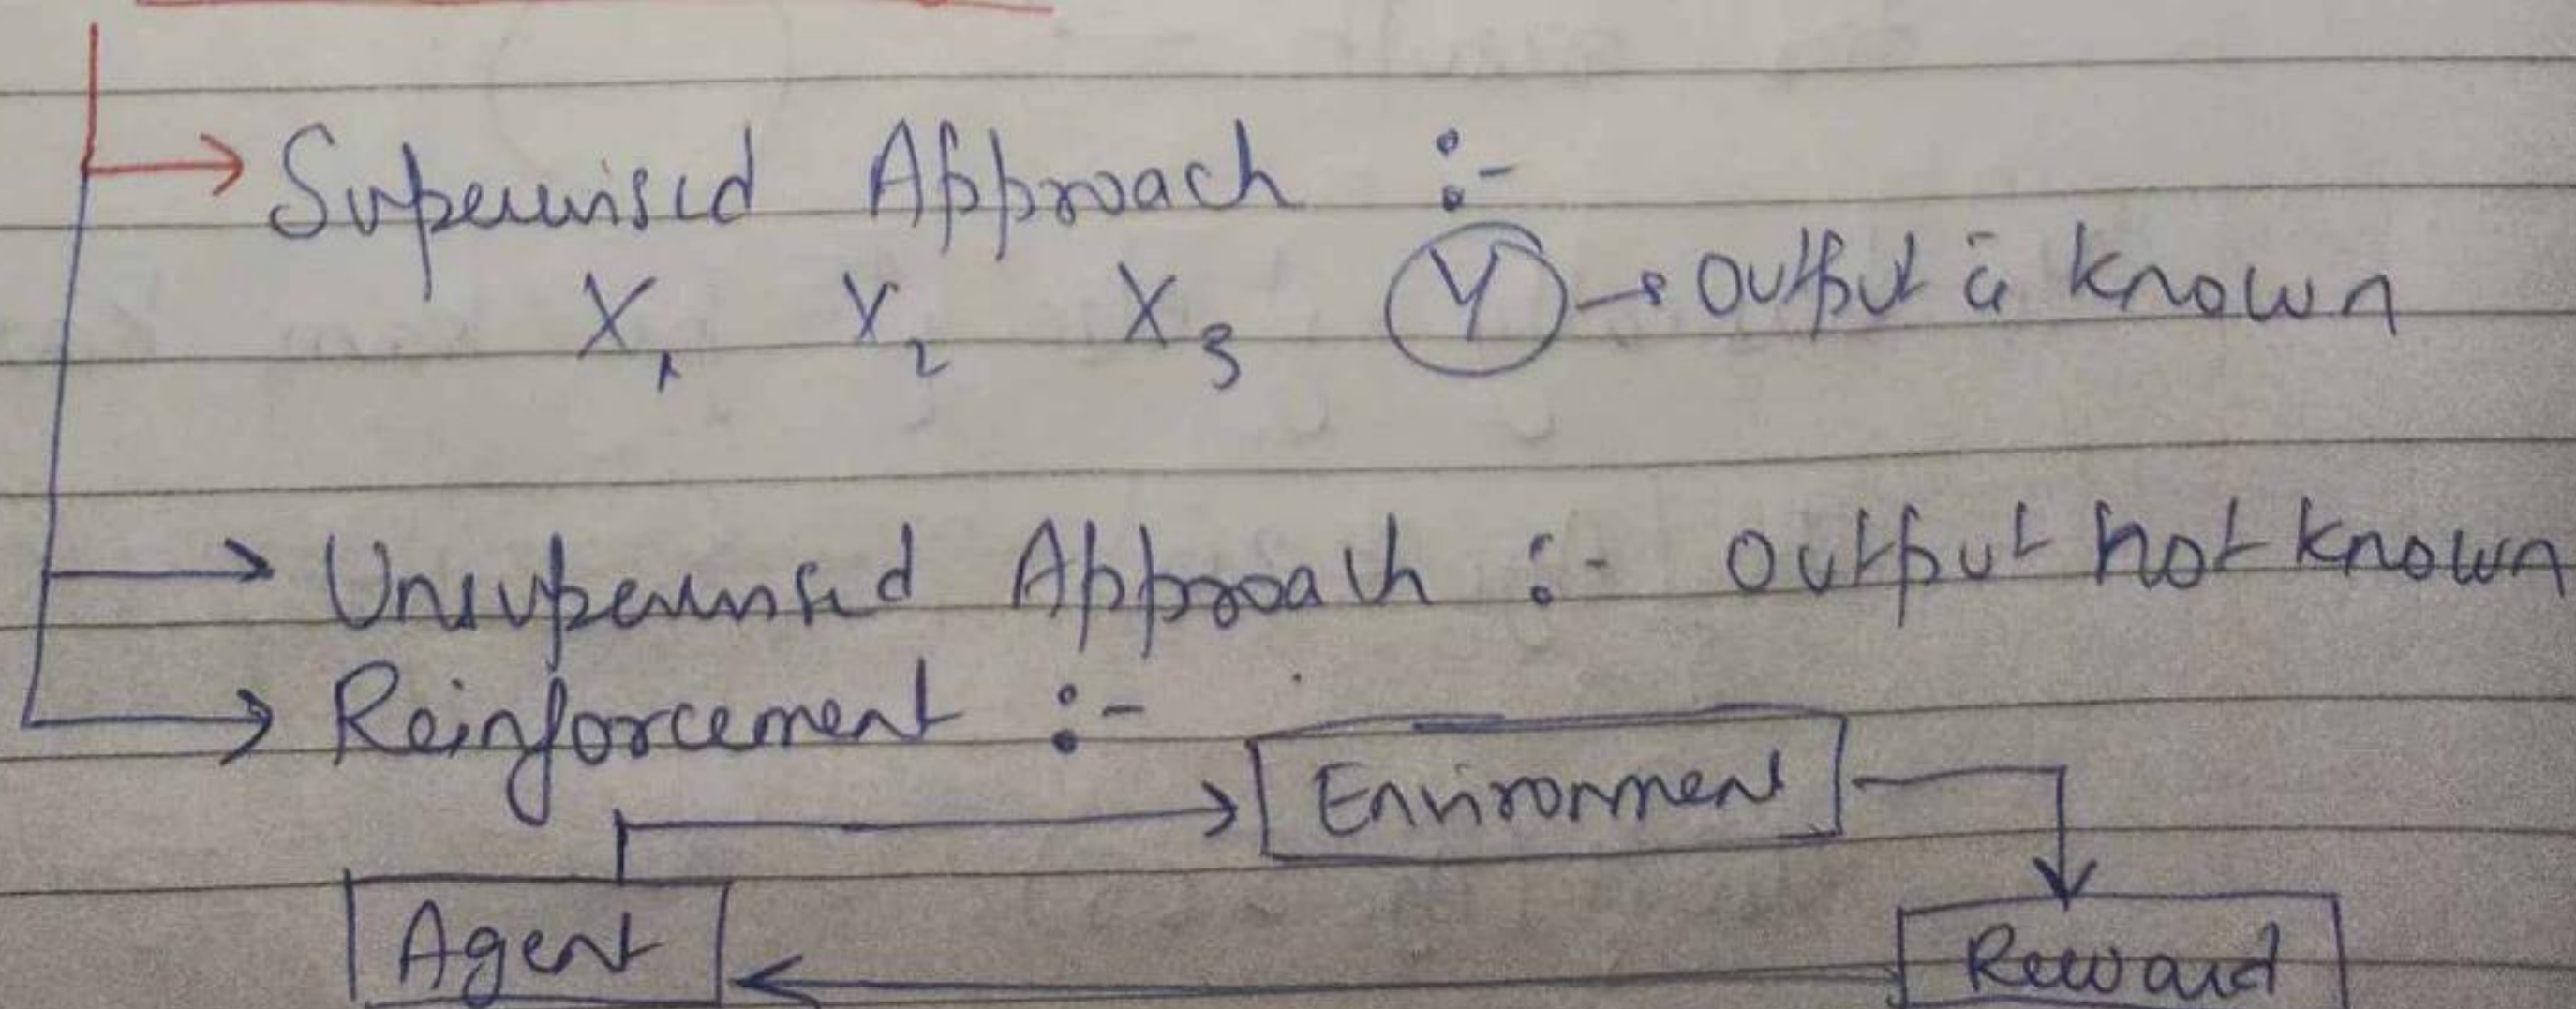 Supervised Approach :-
X1 X2 X3 Y → output is known
Unsupervised Approach :- output not known
Reinforcement :-
Environment
Agent
Reward